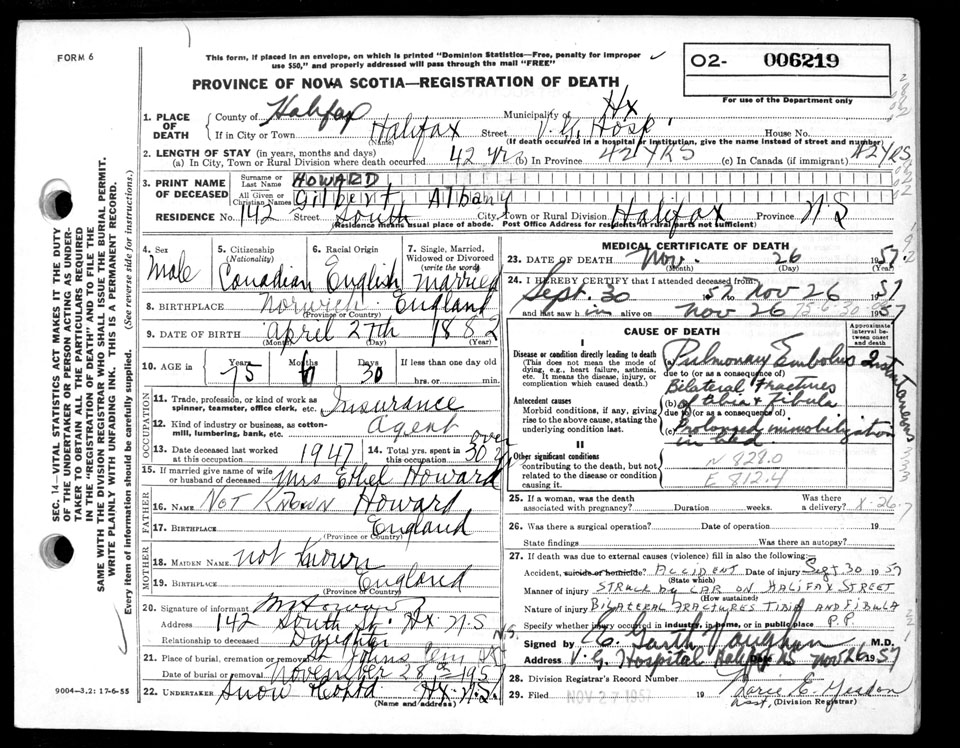 FORM 6
This form, if placed in an envelope, on which is printed "Dominion Statistics—Free, penalty for improper
use $50," and properly addressed will pass through the mail "FREE"
PROVINCE OF NOVA SCOTIA—REGISTRATION OF DEATH
O2- 006219
For use of the Department only
1. PLACE OF DEATH
County of Halifax Municipality of Hx
If in City or Town Halifax Street V. G. Hosp. House No.
(Name) (If death occurred in a hospital or institution, give the name instead of street and number)
2. LENGTH OF STAY (in years, months and days)
(a) In City, Town or Rural Division where death occurred 42 yrs (b) In Province 42 YRS (c) In Canada (if immigrant) 42 YRS
3. PRINT NAME OF DECEASED
Surname or Last Name HOWARD
All Given or Christian Names Gilbert Albany
RESIDENCE No. 142 Street South City, Town or Rural Division Halifax Province N S
(Residence means usual place of abode. Post Office Address for residents in rural parts not sufficient)
4. Sex Male
5. Citizenship (Nationality) Canadian
6. Racial Origin English
7. Single, Married, Widowed or Divorced (write the word) Married
8. BIRTHPLACE Norwich England
(Province or Country)
9. DATE OF BIRTH April 27th 1882
(Month) (Day) (Year)
10. AGE in Years 75 Months 6 Days 30 If less than one day
hrs. or min.
OCCUPATION
11. Trade, profession, or kind of work as spinner, teamster, office clerk, etc. Insurance
12. Kind of industry or business, as cotton-mill, lumbering, bank, etc. agent
13. Date deceased last worked at this occupation 1947
14. Total yrs. spent in this occupation over 30
15. If married give name of wife or husband of deceased Mrs Ethel Howard
FATHER
16. NAME Not Known Howard
17. BIRTHPLACE England
(Province or Country)
MOTHER
18. MAIDEN NAME not Known
19. BIRTHPLACE England
(Province or Country)
20. Signature of informant
Address 142 South St. Hx. N.S.
Relationship to deceased Daughter
21. Place of burial, cremation or removal St Johns Cem N.S.
Date of burial or removal November 28th 195
22. UNDERTAKER Snow Co Ltd Hx. N.S.
(Name and address)
9004-3.2: 17-6-55
SEC. 14—VITAL STATISTICS ACT MAKES IT THE DUTY
OF THE UNDERTAKER OR PERSON ACTING AS UNDER-
TAKER TO OBTAIN ALL THE PARTICULARS REQUIRED
IN THE "REGISTRATION OF DEATH" AND TO FILE THE
SAME WITH THE DIVISION REGISTRAR WHO SHALL ISSUE THE BURIAL PERMIT.
WRITE PLAINLY WITH UNFADING INK. THIS IS A PERMANENT RECORD.
Every item of information should be carefully supplied. (See reverse side for instructions.)
MEDICAL CERTIFICATE OF DEATH
23. DATE OF DEATH Nov. 26 1957
(Month) (Day) (Year)
24. I HEREBY CERTIFY that I attended deceased from
Sept. 30 57 to Nov 26 57
and last saw h im alive on Nov 26 75-6-30 1957
CAUSE OF DEATH
Approximate interval between onset and death
I
Disease or condition directly leading to death
(This does not mean the mode of dying, e.g., heart failure, asthenia, etc. It means the disease, injury, or complication which caused death.)
(a) Pulmonary Embolus Instantaneous
due to (or as a consequence of)
Antecedent causes
Morbid conditions, if any, giving rise to the above cause, stating the underlying condition last.
(b) Bilateral Fractures of Tibia & Fibula
due to (or as a consequence of)
(c) Prolonged immobilization in bed
II
Other significant conditions
contributing to the death, but not related to the disease or condition causing it.
N 828.0
E 812.4
25. If a woman, was the death associated with pregnancy? Duration weeks. Was there a delivery? X-26-7
26. Was there a surgical operation? Date of operation 19
State findings Was there an autopsy?
27. If death was due to external causes (violence) fill in also the following:—
Accident, suicide or homicide? ACCIDENT Date of injury Sept. 30 1957
(State which)
Manner of injury STRUCK by CAR ON HALIFAX STREET
(How sustained)
Nature of injury BILATERAL FRACTURES TIBIA AND FIBULA
Specify whether injury occurred in industry, in home, or in public place P.P.
Signed by C. Garth Vaughan M.D.
Address V. G. Hospital Halifax NS Nov 26 1957
28. Division Registrar's Record Number
29. Filed NOV 27 1957 19
Asst. (Division Registrar)